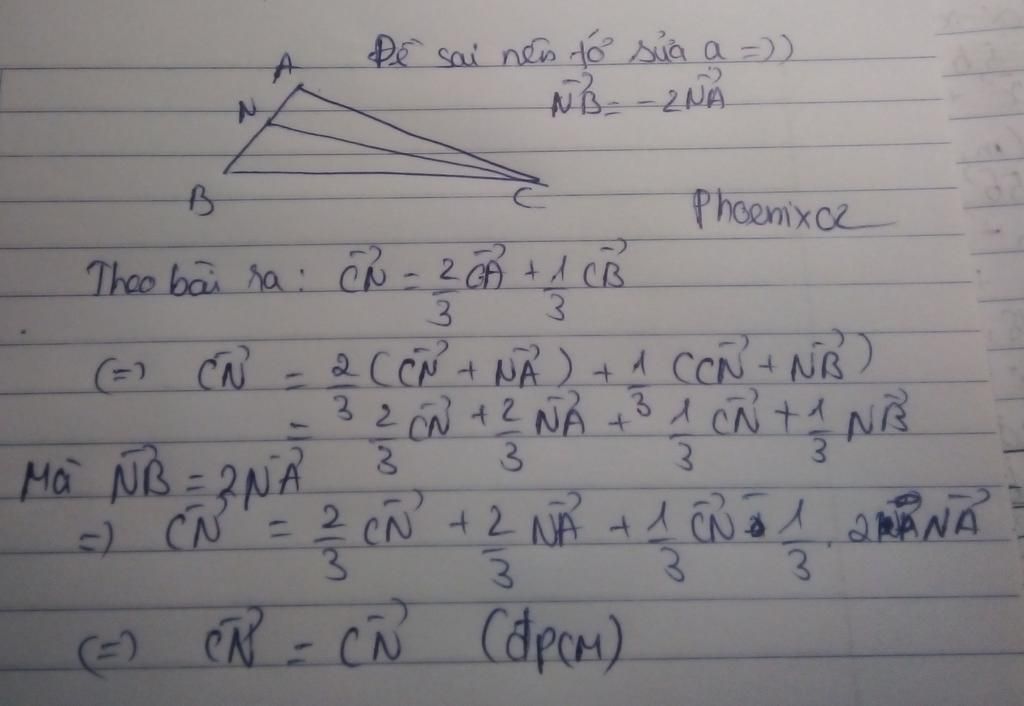 Đề sai nên tớ sửa a =))
A
NB→ = -2NA→
N
B
C
Phoenixcz
Theo bài ra: CN→ = 2/3 CA→ + 1/3 CB→
(=) CN→ = 2/3 (CN→ + NA→) + 1/3 (CN→ + NB→)
= 2/3 CN→ + 2/3 NA→ + 1/3 CN→ + 1/3 NB→
Mà NB→ = 2NA→
=) CN→ = 2/3 CN→ + 2/3 NA→ + 1/3 CN→ - 1/3 . 2 NA→
(=) CN→ = CN→ (đpcm)